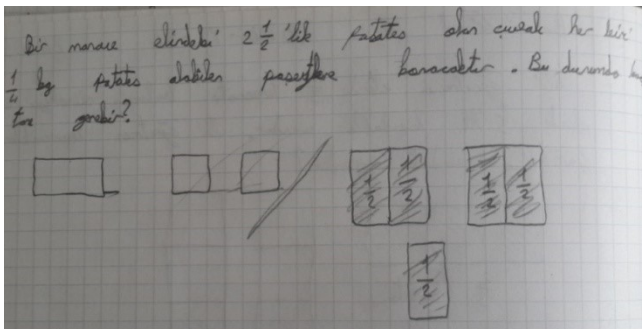 Bir manav elindeki 2 1/2 'lik patates olan çuvalı her biri
1/4 kg patates alabilen poşetlere koyacaktır. Bu durumda
gerekir?
1/2 1/2 1/2 1/2
1/2